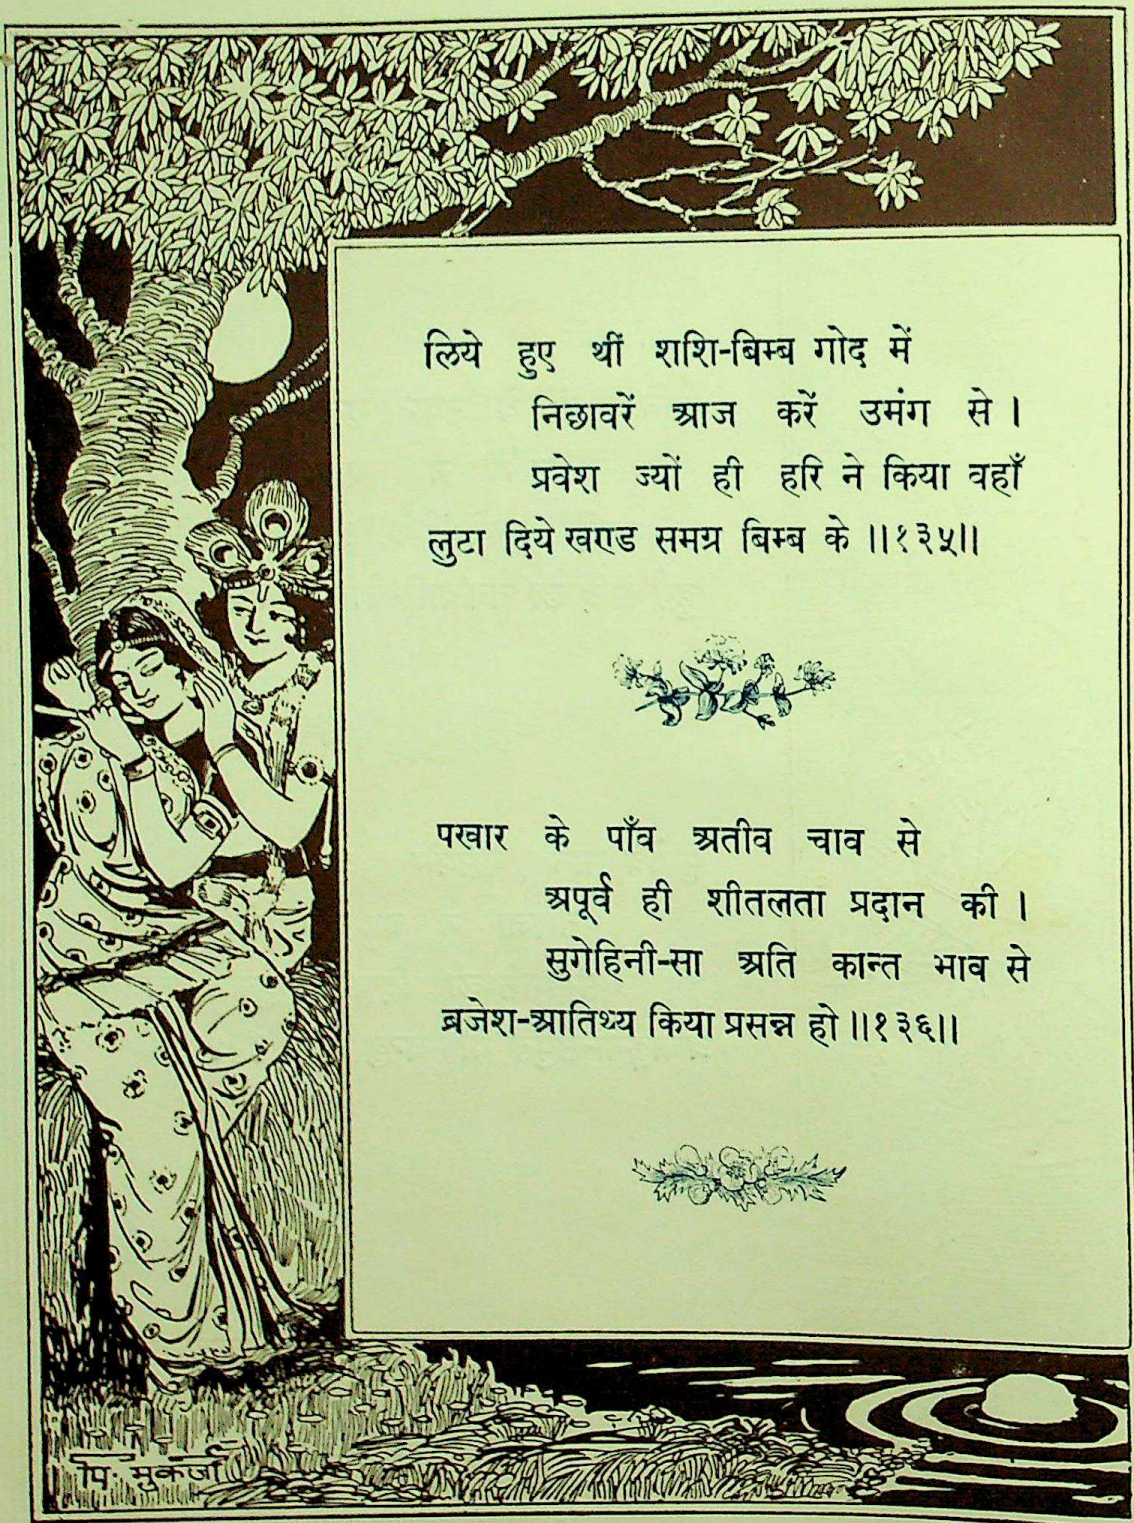 लिये हुए थीं शशि-बिम्ब गोद में
निछावरें आज करें उमंग से ।
प्रवेश ज्यों ही हरि ने किया वहाँ
लुटा दिये खण्ड समग्र बिम्ब के ॥१३५॥
पखार के पाँव अतीव चाव से
अपूर्व ही शीतलता प्रदान की ।
सुगेहिनी-सा अति कान्त भाव से
ब्रजेश-आतिथ्य किया प्रसन्न हो ॥१३६॥
पि. मुकर्जी